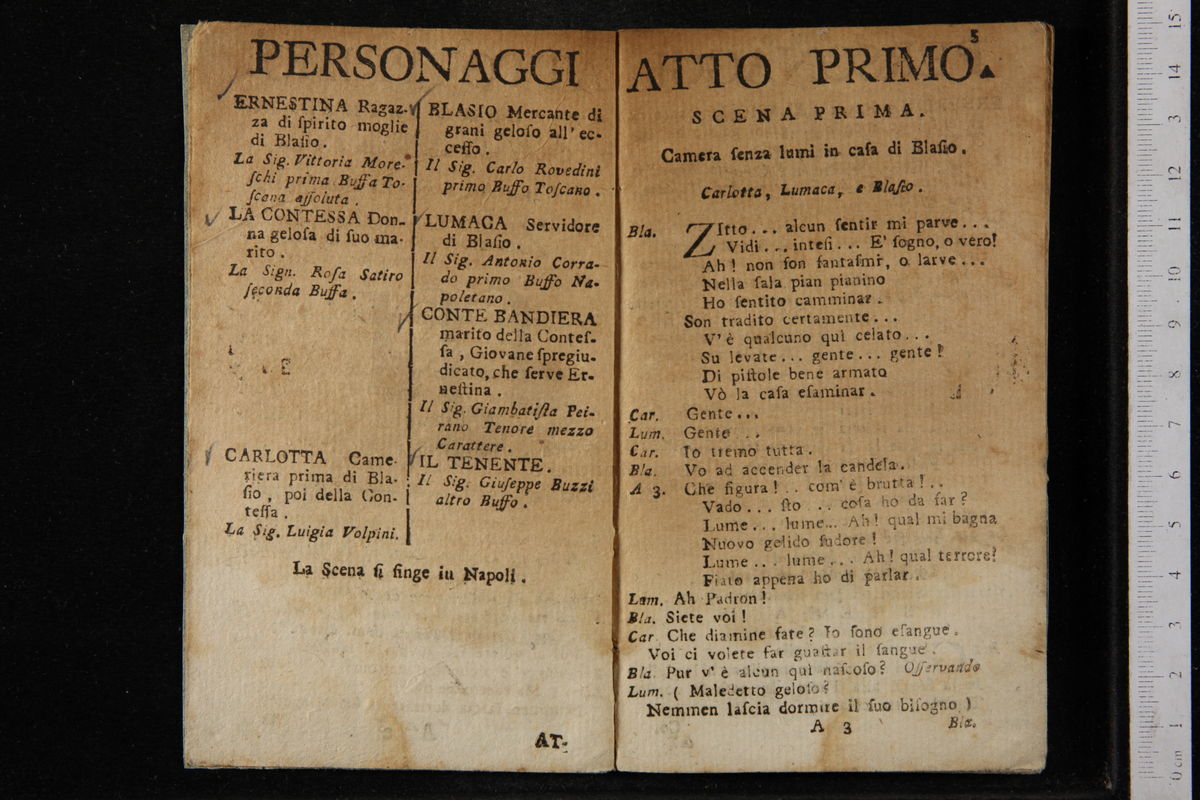 PERSONAGGI
ERNESTINA Ragaz-
za di ſpirito moglie
di Blaſio.
La Sig. Vittoria More-
ſchi prima Buffa To-
ſcana aſſoluta.
LA CONTESSA Don-
na geloſa di ſuo ma-
rito.
La Sign. Roſa Satiro
ſeconda Buffa.
CARLOTTA Came-
riera prima di Bla-
ſio, poi della Con-
teſſa.
La Sig. Luigia Volpini.
BLASIO Mercante di
grani geloſo all' ec-
ceſſo.
Il Sig. Carlo Rovedini
primo Buffo Toſcano.
LUMACA Servidore
di Blaſio.
Il Sig. Antonio Corra-
do primo Buffo Na-
poletano.
CONTE BANDIERA
marito della Conteſ-
ſa, Giovane ſpregiu-
dicato, che ſerve Er-
neſtina.
Il Sig. Giambatiſta Pei-
rano Tenore mezzo
Carattere.
IL TENENTE.
Il Sig. Giuſeppe Buzzi
altro Buffo.
La Scena ſi finge in Napoli.
AT-
5
ATTO PRIMO.
SCENA PRIMA.
Camera ſenza lumi in caſa di Blaſio.
Carlotta, Lumaca, e Blaſio.
Bla. ZItto... alcun ſentir mi parve...
Vidi... inteſi... E' ſogno, o vero!
Ah! non ſon fantaſmi, o larve...
Nella ſala pian pianino
Ho ſentito camminar.
Son tradito certamente...
V'è qualcuno quì celato...
Su levate... gente... gente!
Di piſtole bene armato
Vò la caſa eſaminar.
Car. Gente...
Lum. Gente...
Car. Io tremo tutta.
Bla. Vo ad accender la candela.
A 3. Che figura!.. com' è brutta!..
Vado... ſto... coſa ho da far?
Lume... lume... Ah! qual mi bagna
Nuovo gelido ſudore!
Lume... lume... Ah! qual terrore!
Fiato appena ho di parlar.
Lum. Ah Padron!
Bla. Siete voi!
Car. Che diamine fate? Io ſono eſangue.
Voi ci volete far guaſtar il ſangue.
Bla. Pur v' è alcun quì naſcoſo? Oſſervando
Lum. ( Maledetto geloſo?
Nemmen laſcia dormire il ſuo biſogno )
A 3
Bla.